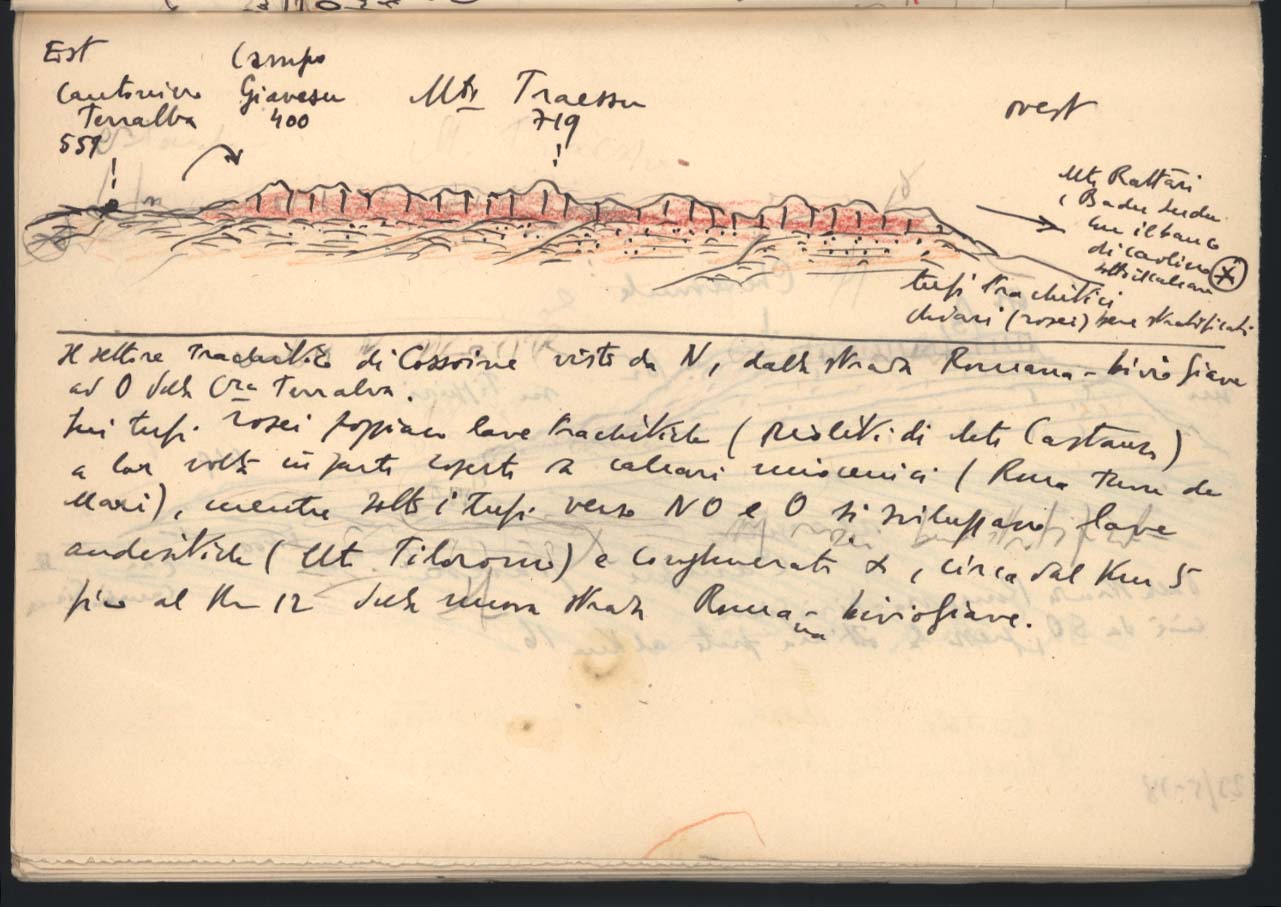 Est
Cantoniera
Terralba
559
Campo
Giavesu
400
Mte Traessu
719
ovest
Mti Rattari
Badu
con il banco
di caolino
sotto il calcare
tufi trachitici
chiari (rosei) bene stratificati
Il settore trachitico di Cossoine visto da N, dalla strada Romana - bivio Giave
ad O della Cra Terralba.
Sui tufi rosei poggiano lave trachitiche (rioliti di
a lor volta in parte coperte da calcari miocenici (
Mari), mentre sotto i tufi verso NO e O si sviluppano lave
andesitiche (Mt Tiloromo) e conglomerati α, circa dal Km 5
fino al Km 12 della nuova strada Romana - bivio Giave.